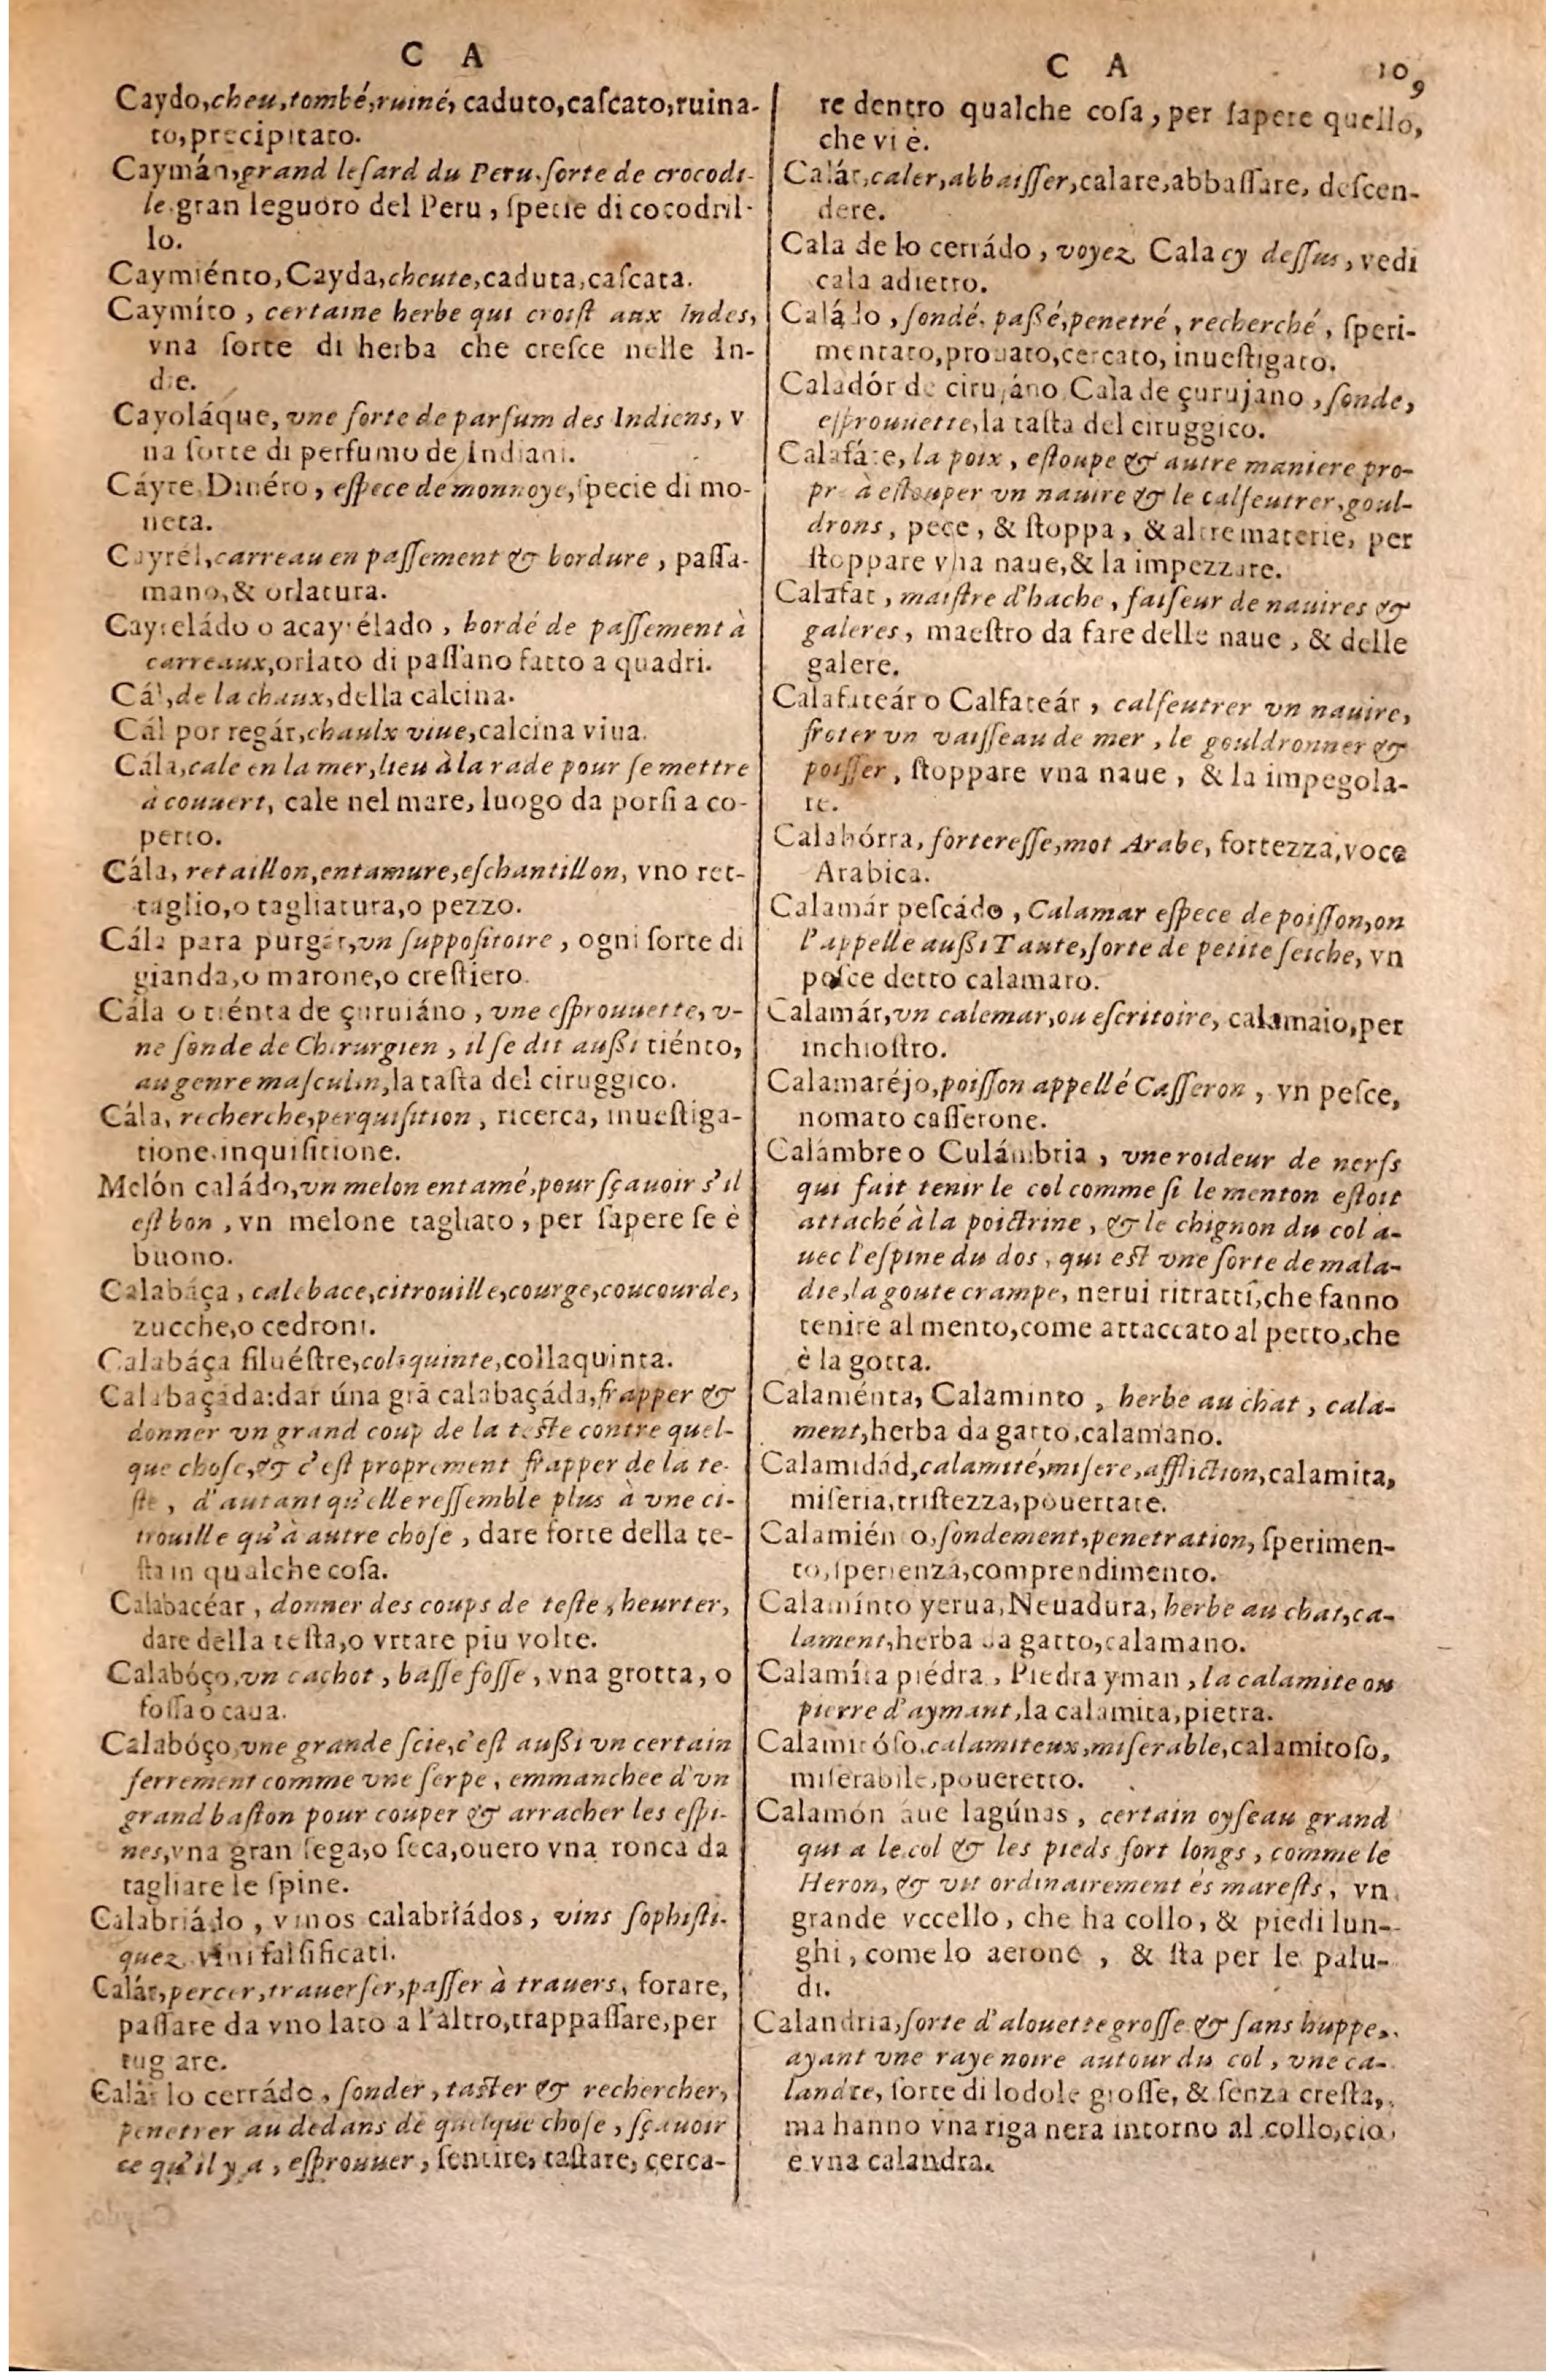 C A
Caydo, cheu, tombé, ruiné, caduto, caſcato, ruina-
to, precipitato.
Caymán, grand leſard du Peru, ſorte de crocodi-
le, gran leguoro del Peru, ſpecie di cocodril-
lo.
Caymiénto, Cayda, cheute, caduta, caſcata.
Caymíto, certaine herbe qui croiſt aux Indes,
vna ſorte di herba che creſce nelle In-
die.
Cayoláque, vne ſorte de parfum des Indiens, v
na ſorte di perfumo de Indiani.
Cáyre, Dinéro, eſpece de monnoye, ſpecie di mo-
neta.
Cayrél, carreau en paſſement & bordure, paſſa-
mano, & orlatura.
Cayreládo o acayrélado, bordé de paſſement à
carreaux, orlato di paſſano fatto a quadri.
Cál, de la chaux, della calcina.
Cál por regár, chaulx viue, calcina viua.
Cála, cale en la mer, lieu à la rade pour ſe mettre
à couuert, cale nel mare, luogo da porſi a co-
perto.
Cála, retaillon, entamure, eſchantillon, vno ret-
taglio, o tagliatura, o pezzo.
Cála para purgár, vn ſuppoſitoire, ogni ſorte di
gianda, o marone, o creſtiero.
Cála o tiénta de çuruiáno, vne eſprouuette, v-
ne ſonde de Chirurgien, il ſe dit außi tiénto,
au genre maſculin, la taſta del ciruggico.
Cála, recherche, perquiſition, ricerca, inueſtiga-
tione, inquiſitione.
Melón caládo, vn melon entamé, pour ſçauoir s'il
eſt bon, vn melone tagliato, per ſapere ſe è
buono.
Calabáça, calebace, citrouille, courge, coucourde,
zucche, o cedroni.
Calabáça ſiluéſtre, coloquinte, collaquinta.
Calabaçáda: dar úna grã calabaçáda, frapper &
donner vn grand coup de la teſte contre quel-
que choſe, & c'eſt proprement frapper de la te-
ſte, d'autant qu'elle reſſemble plus à vne ci-
trouille qu'à autre choſe, dare forte della te-
ſta in qualche coſa.
Calabacéar, donner des coups de teſte, heurter,
dare della teſta, o vrtare piu volte.
Calabóço, vn cachot, baſſe foſſe, vna grotta, o
foſſa o caua.
Calabóço, vne grande ſcie, c'eſt außi vn certain
ferrement comme vne ſerpe, emmanchee d'vn
grand baſton pour couper & arracher les eſpi-
nes, vna gran ſega, o ſeca, ouero vna ronca da
tagliare le ſpine.
Calabriádo, vinos calabriádos, vins ſophiſti-
quez, vini falſificati.
Calár, percer, trauerſer, paſſer à trauers, forare,
paſſare da vno lato a l'altro, trappaſſare, per
tug are.
Calár lo cerrádo, ſonder, taſter & rechercher,
penetrer au dedans de quelque choſe, ſçauoir
ce qu'il y a, eſprouuer, ſentire, taſtare, cerca-
C A 109
re dentro qualche coſa, per ſapere quello,
che vi è.
Calár, caler, abbaiſſer, calare, abbaſſare, deſcen-
dere.
Cala de lo cerrádo, voyez Cala cy deſſus, vedi
cala adietro.
Caládo, ſondé, paßé, penetré, recherché, ſperi-
mentato, prouato, cercato, inueſtigato.
Caladór de cirujáno, Cala de çurujano, ſonde,
eſprouuette, la taſta del ciruggico.
Calafáte, la poix, eſtoupe & autre maniere pro-
pre à eſtouper vn nauire & le calfeutrer, goul-
drons, pece, & ſtoppa, & altre materie, per
ſtoppare vna naue, & la impezzare.
Calafat, maiſtre d'hache, faiſeur de nauires &
galeres, maeſtro da fare delle naue, & delle
galere.
Calafateár o Calfateár, calfeutrer vn nauire,
froter vn vaiſſeau de mer, le gouldronner &
poiſſer, ſtoppare vna naue, & la impegola-
re.
Calahórra, fortereſſe, mot Arabe, fortezza, voce
Arabica.
Calamár peſcádo, Calamar eſpece de poiſſon, on
l'appelle außi Taute, ſorte de petite ſeiche, vn
peſce detto calamaro.
Calamár, vn calemar, ou eſcritoire, calamaio, per
inchioſtro.
Calamaréjo, poiſſon appellé Caſſeron, vn peſce,
nomato caſſerone.
Calámbre o Culámbria, vne roideur de nerfs
qui fait tenir le col comme ſi le menton eſtoit
attaché à la poictrine, & le chignon du col a-
uec l'eſpine du dos, qui eſt vne ſorte de mala-
die, la goute crampe, nerui ritratti, che fanno
tenire al mento, come attaccato al petto, che
è la gotta.
Calaménta, Calaminto, herbe au chat, cala-
ment, herba da gatto, calamano.
Calamidád, calamité, miſere, affliction, calamita,
miſeria, triſtezza, pouertate.
Calamiénto, ſondement, penetration, ſperimen-
to, ſperienza, comprendimento.
Calamínto yerua, Neuadura, herbe au chat, ca-
lament, herba da gatto, calamano.
Calamíta piédra, Piedra yman, la calamite ou
pierre d'aymant, la calamita, pietra.
Calamitóſo, calamiteux, miſerable, calamitoſo,
miſerabile, poueretto.
Calamón áue lagúnas, certain oyſeau grand
qui a le col & les pieds fort longs, comme le
Heron, & vit ordinairement és mareſts, vn
grande vccello, che ha collo, & piedi lun-
ghi, come lo aerone, & ſta per le palu-
di.
Calandria, ſorte d'alouette groſſe & ſans huppe,
ayant vne raye noire autour du col, vne ca-
landre, ſorte di lodole groſſe, & ſenza creſta,
ma hanno vna riga nera intorno al collo, cio
è vna calandra.